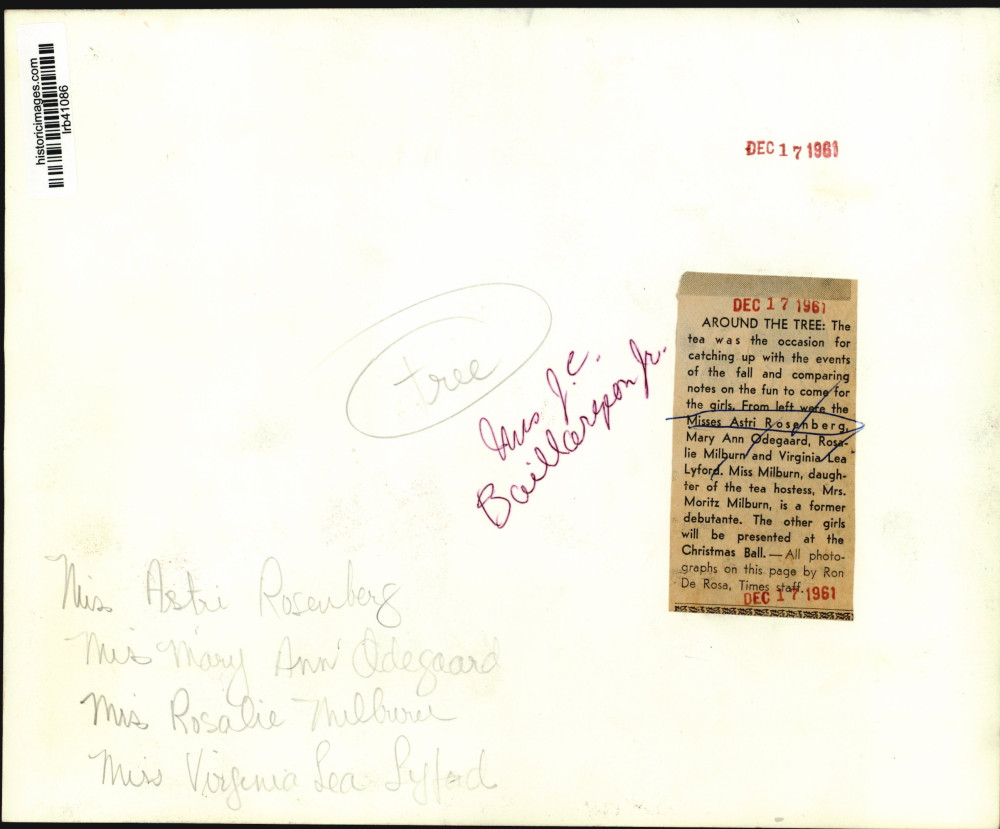 historicimages.com
lrb41086
DEC 17 1961
tree
Mrs J. C.
Baillargeon Jr.
DEC 17 1961
AROUND THE TREE: The
tea was the occasion for
catching up with the events
of the fall and comparing
notes on the fun to come for
the girls. From left were the
Misses Astri Rosenberg,
Mary Ann Odegaard, Rosa-
lie Milburn and Virginia Lea
Lyford. Miss Milburn, daugh-
ter of the tea hostess, Mrs.
Moritz Milburn, is a former
debutante. The other girls
will be presented at the
Christmas Ball. — All photo-
graphs on this page by Ron
De Rosa, Times staff.
DEC 17 1961
Miss Astri Rosenberg
Miss Mary Ann Odegaard
Miss Rosalie Milburn
Miss Virginia Lea Lyford